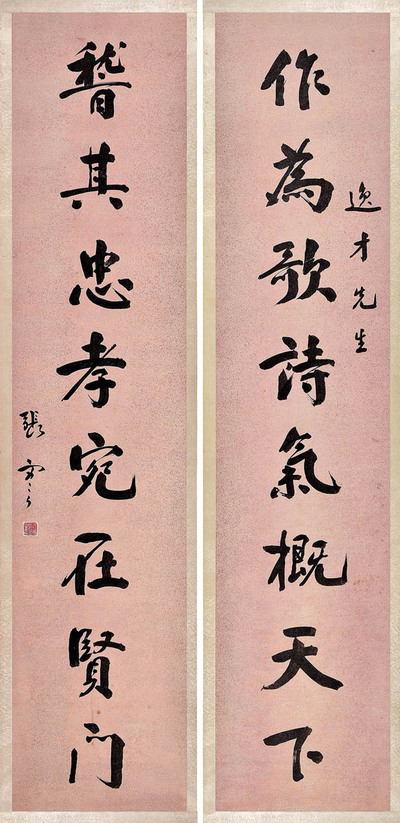 逸才先生
作為歌詩氣概天下
稽其忠孝宛在賢門
張